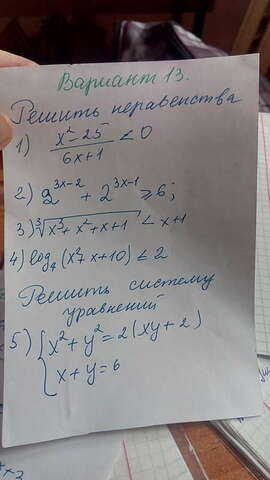 Вариант 13.
Решить неравенства
1) x² - 25 / 6x+1 < 0
2) 2^(3x-2) + 2^(3x-1) ≥ 6;
3) ∛(x³ + x² + x + 1) < x+1
4) log₄ (x² 7x + 10) ≤ 2
Решить систему
уравнений
5) { x² + y² = 2(xy + 2)
x + y = 6